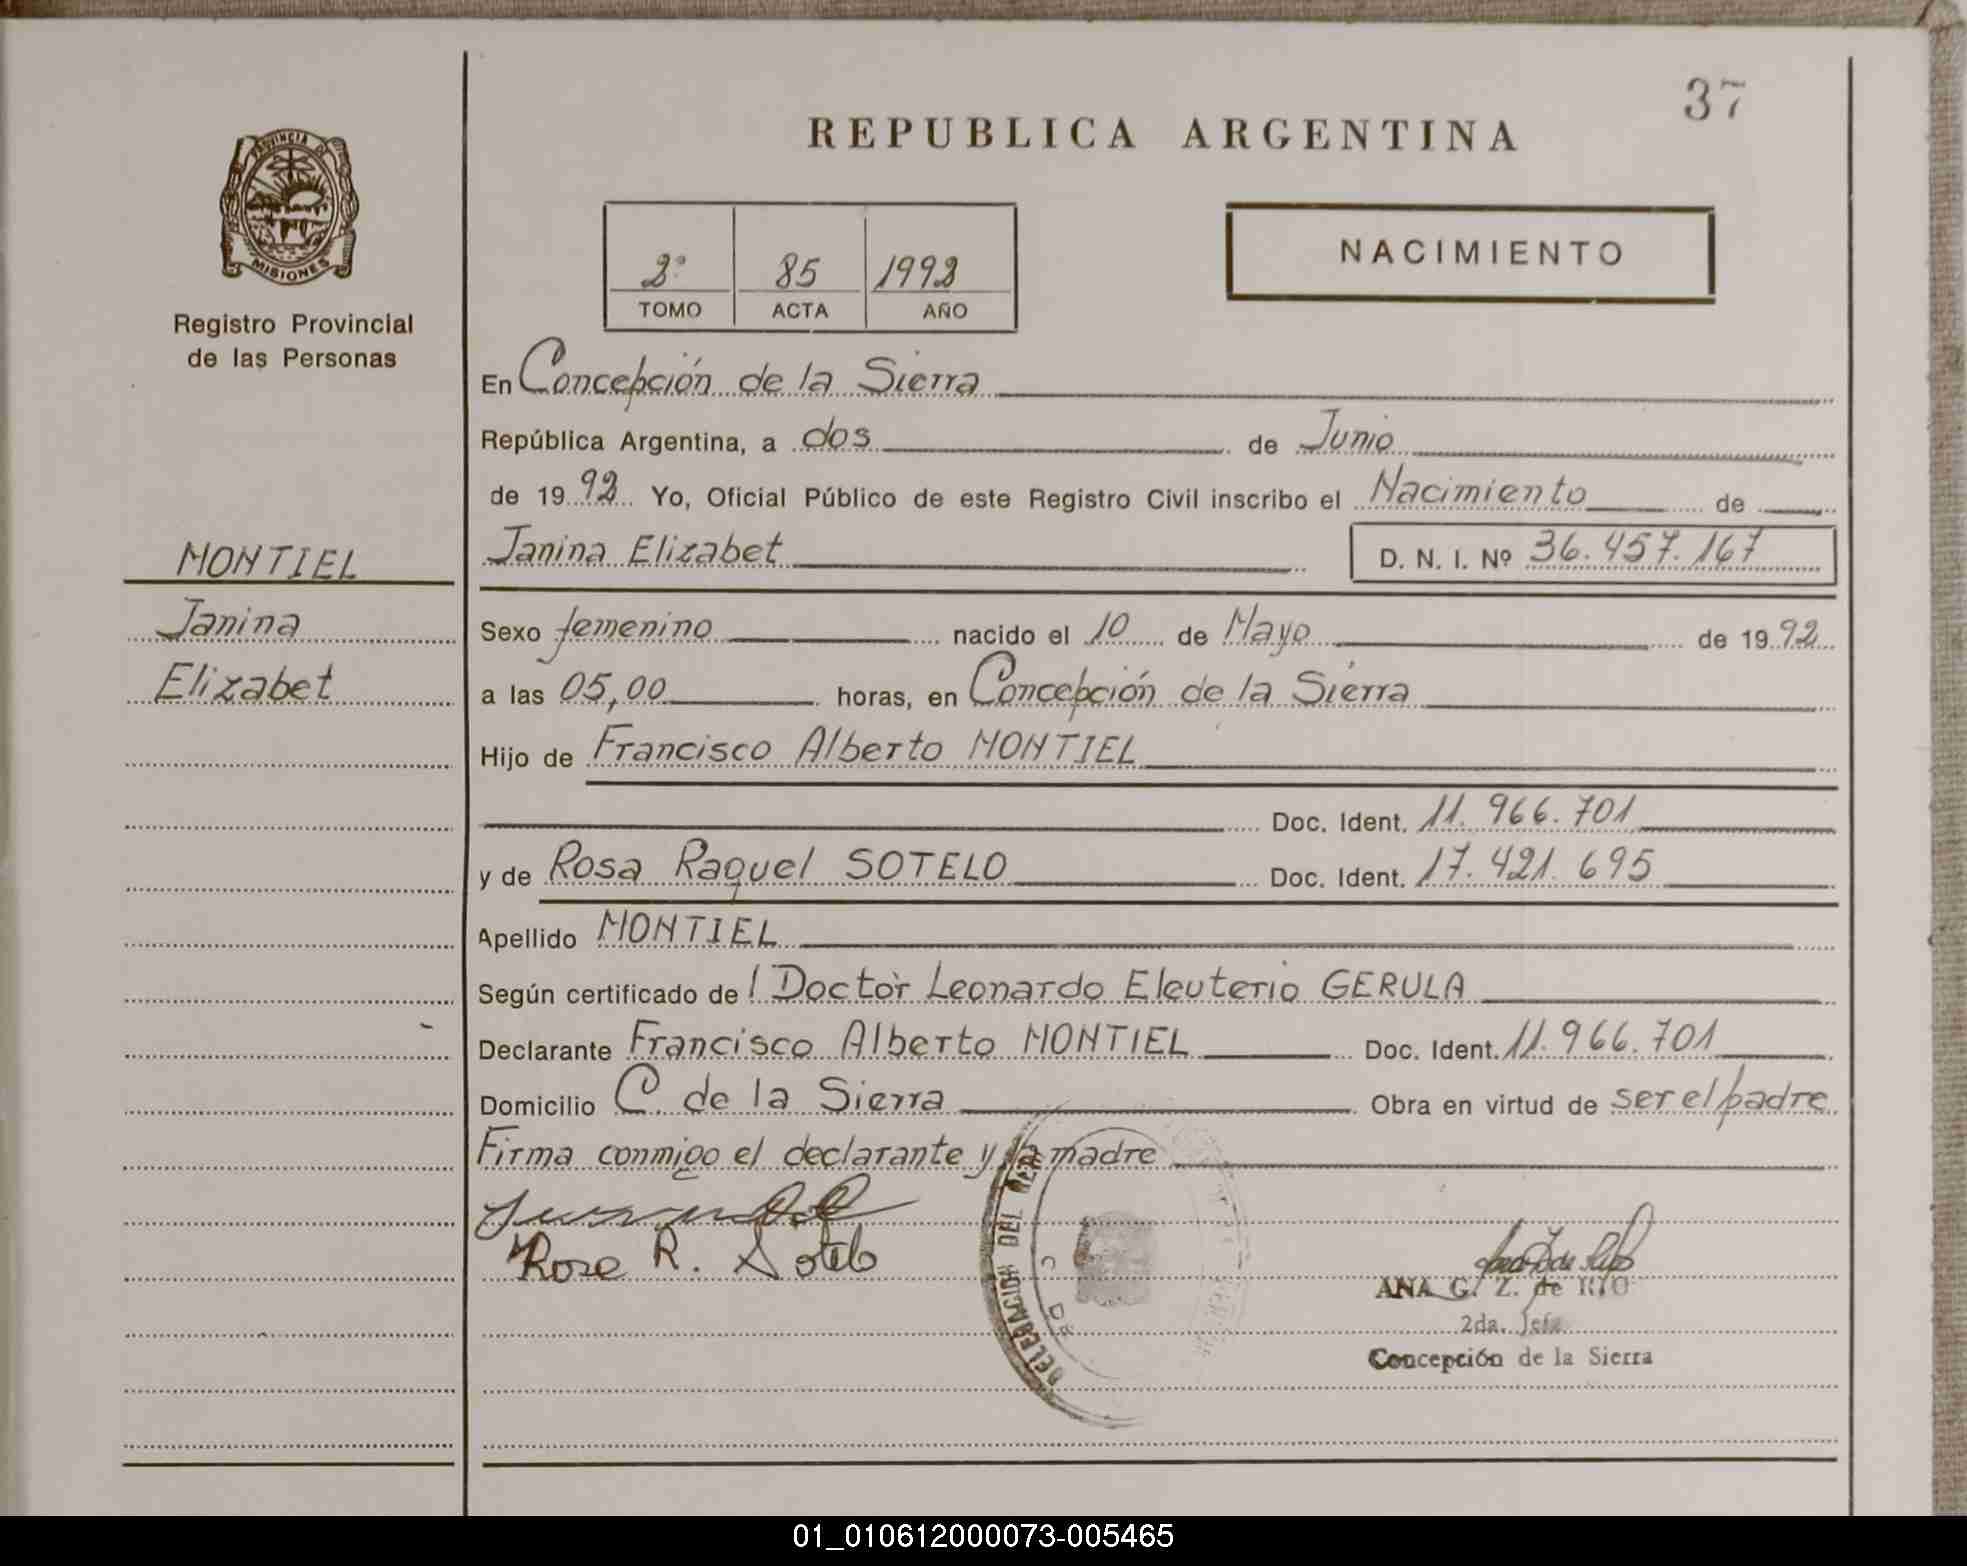 37
REPUBLICA ARGENTINA
PROVINCIA DE
MISIONES
Registro Provincial
de las Personas
2º 85 1992
TOMO ACTA AÑO
NACIMIENTO
En Concepción de la Sierra
República Argentina, a dos de Junio
de 1992 Yo, Oficial Público de este Registro Civil inscribo el Nacimiento de
Janina Elizabet D. N. I. Nº 36.457.167
MONTIEL
Janina
Elizabet
Sexo femenino nacido el 10 de Mayo de 1992
a las 05,00 horas, en Concepción de la Sierra
Hijo de Francisco Alberto MONTIEL
Doc. Ident. 11.966.701
y de Rosa Raquel SOTELO Doc. Ident. 17.421.695
Apellido MONTIEL
Según certificado del Doctor Leonardo Eleuterio GERULA
Declarante Francisco Alberto MONTIEL Doc. Ident. 11.966.701
Domicilio C. de la Sierra Obra en virtud de ser el padre
Firma conmigo el declarante y la madre
Rosa R. Sotelo
DELEGACION DEL
ANA G. Z. de RIO
2da. Jefa
Concepción de la Sierra
01_010612000073-005465